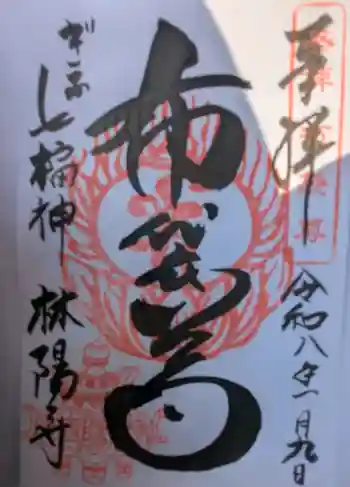 奉拝
令和八年一月九日
布袋尊
ぎふ
七福神
林陽寺